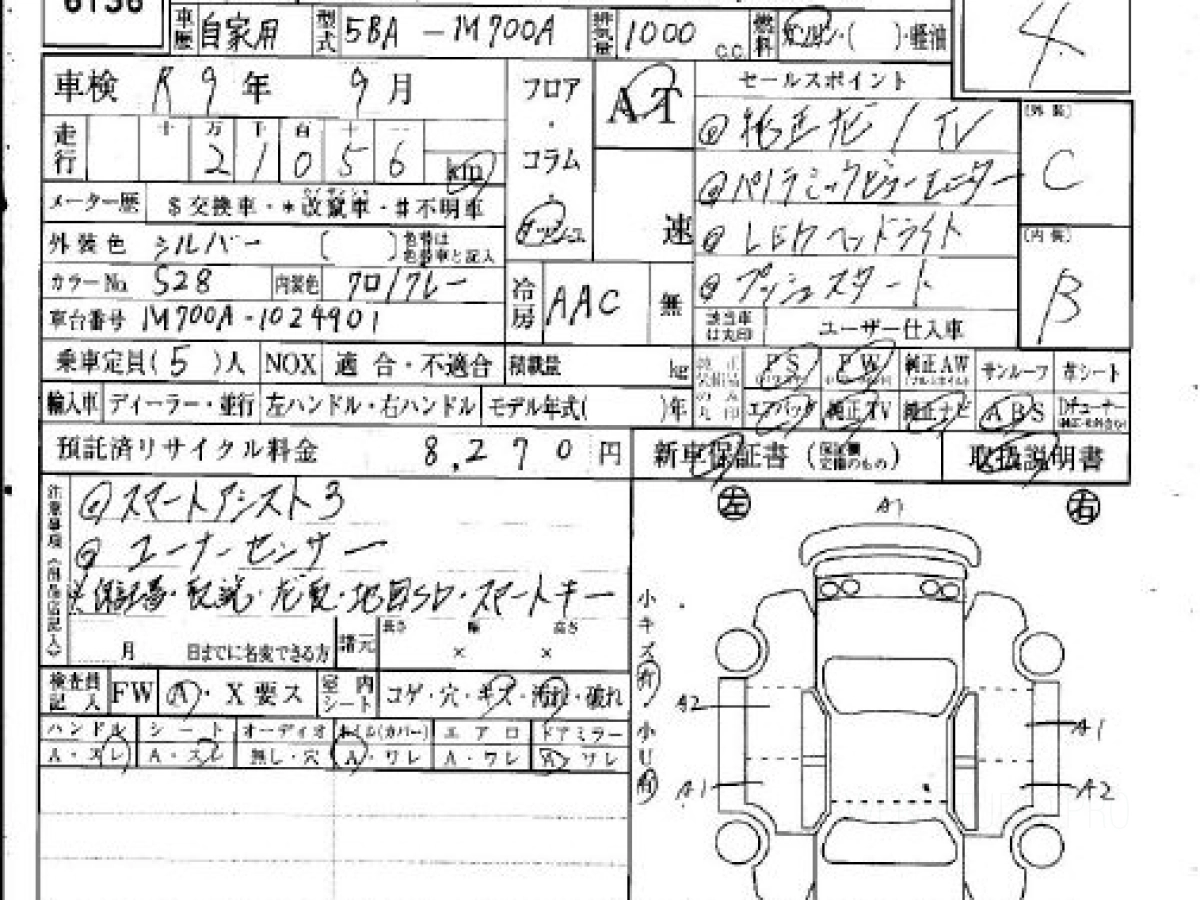 6136
車歴 自家用 型式 5BA-M700A 排気量 1000 C.C. 燃料 ガソリン・( )・軽油
4
車検 R9年 9月
フロア・コラム
AT
速
セールスポイント
走行 十 万 千 百 十 一
21056 km
純正ナビ/TV
パノラミックビューモニター
LEDヘッドライト
プッシュスタート
(外装)
C
(内装)
B
メーター歴 $交換車・*改竄車・#不明車
外装色 シルバー ( ) 色替は色替車と記入
カラーNo. S28 内装色 クロ/グレー
冷房 AAC 無
車台番号 M700A-1024901
該当車は丸印 ユーザー仕入車
乗車定員(5)人 NOX 適合・不適合 積載量 kg
PS PW 純正AW サンルーフ 革シート
輸入車 ディーラー・並行 左ハンドル・右ハンドル モデル年式( )年
エアバッグ 純正TV 純正ナビ ABS
預託済リサイクル料金 8,270円
新車保証書 取扱説明書
注意事項
スマートアシスト3
コーナーセンサー
※保証書・取説・ナビ取・地図SD・スマートキー
月 日までに名変できる方 諸元 長さ × 幅 × 高さ
検査員記入 FW A・X要ス 室内シート コゲ・穴・キズ・汚れ・破れ
ハンドル シート オーディオ エアロ ドアミラー
A・スレ A・スレ 無し・穴 A・ワレ A・ワレ A ワレ
左 右
A1
小キズ有
小U有
A2 A1
A1 A2